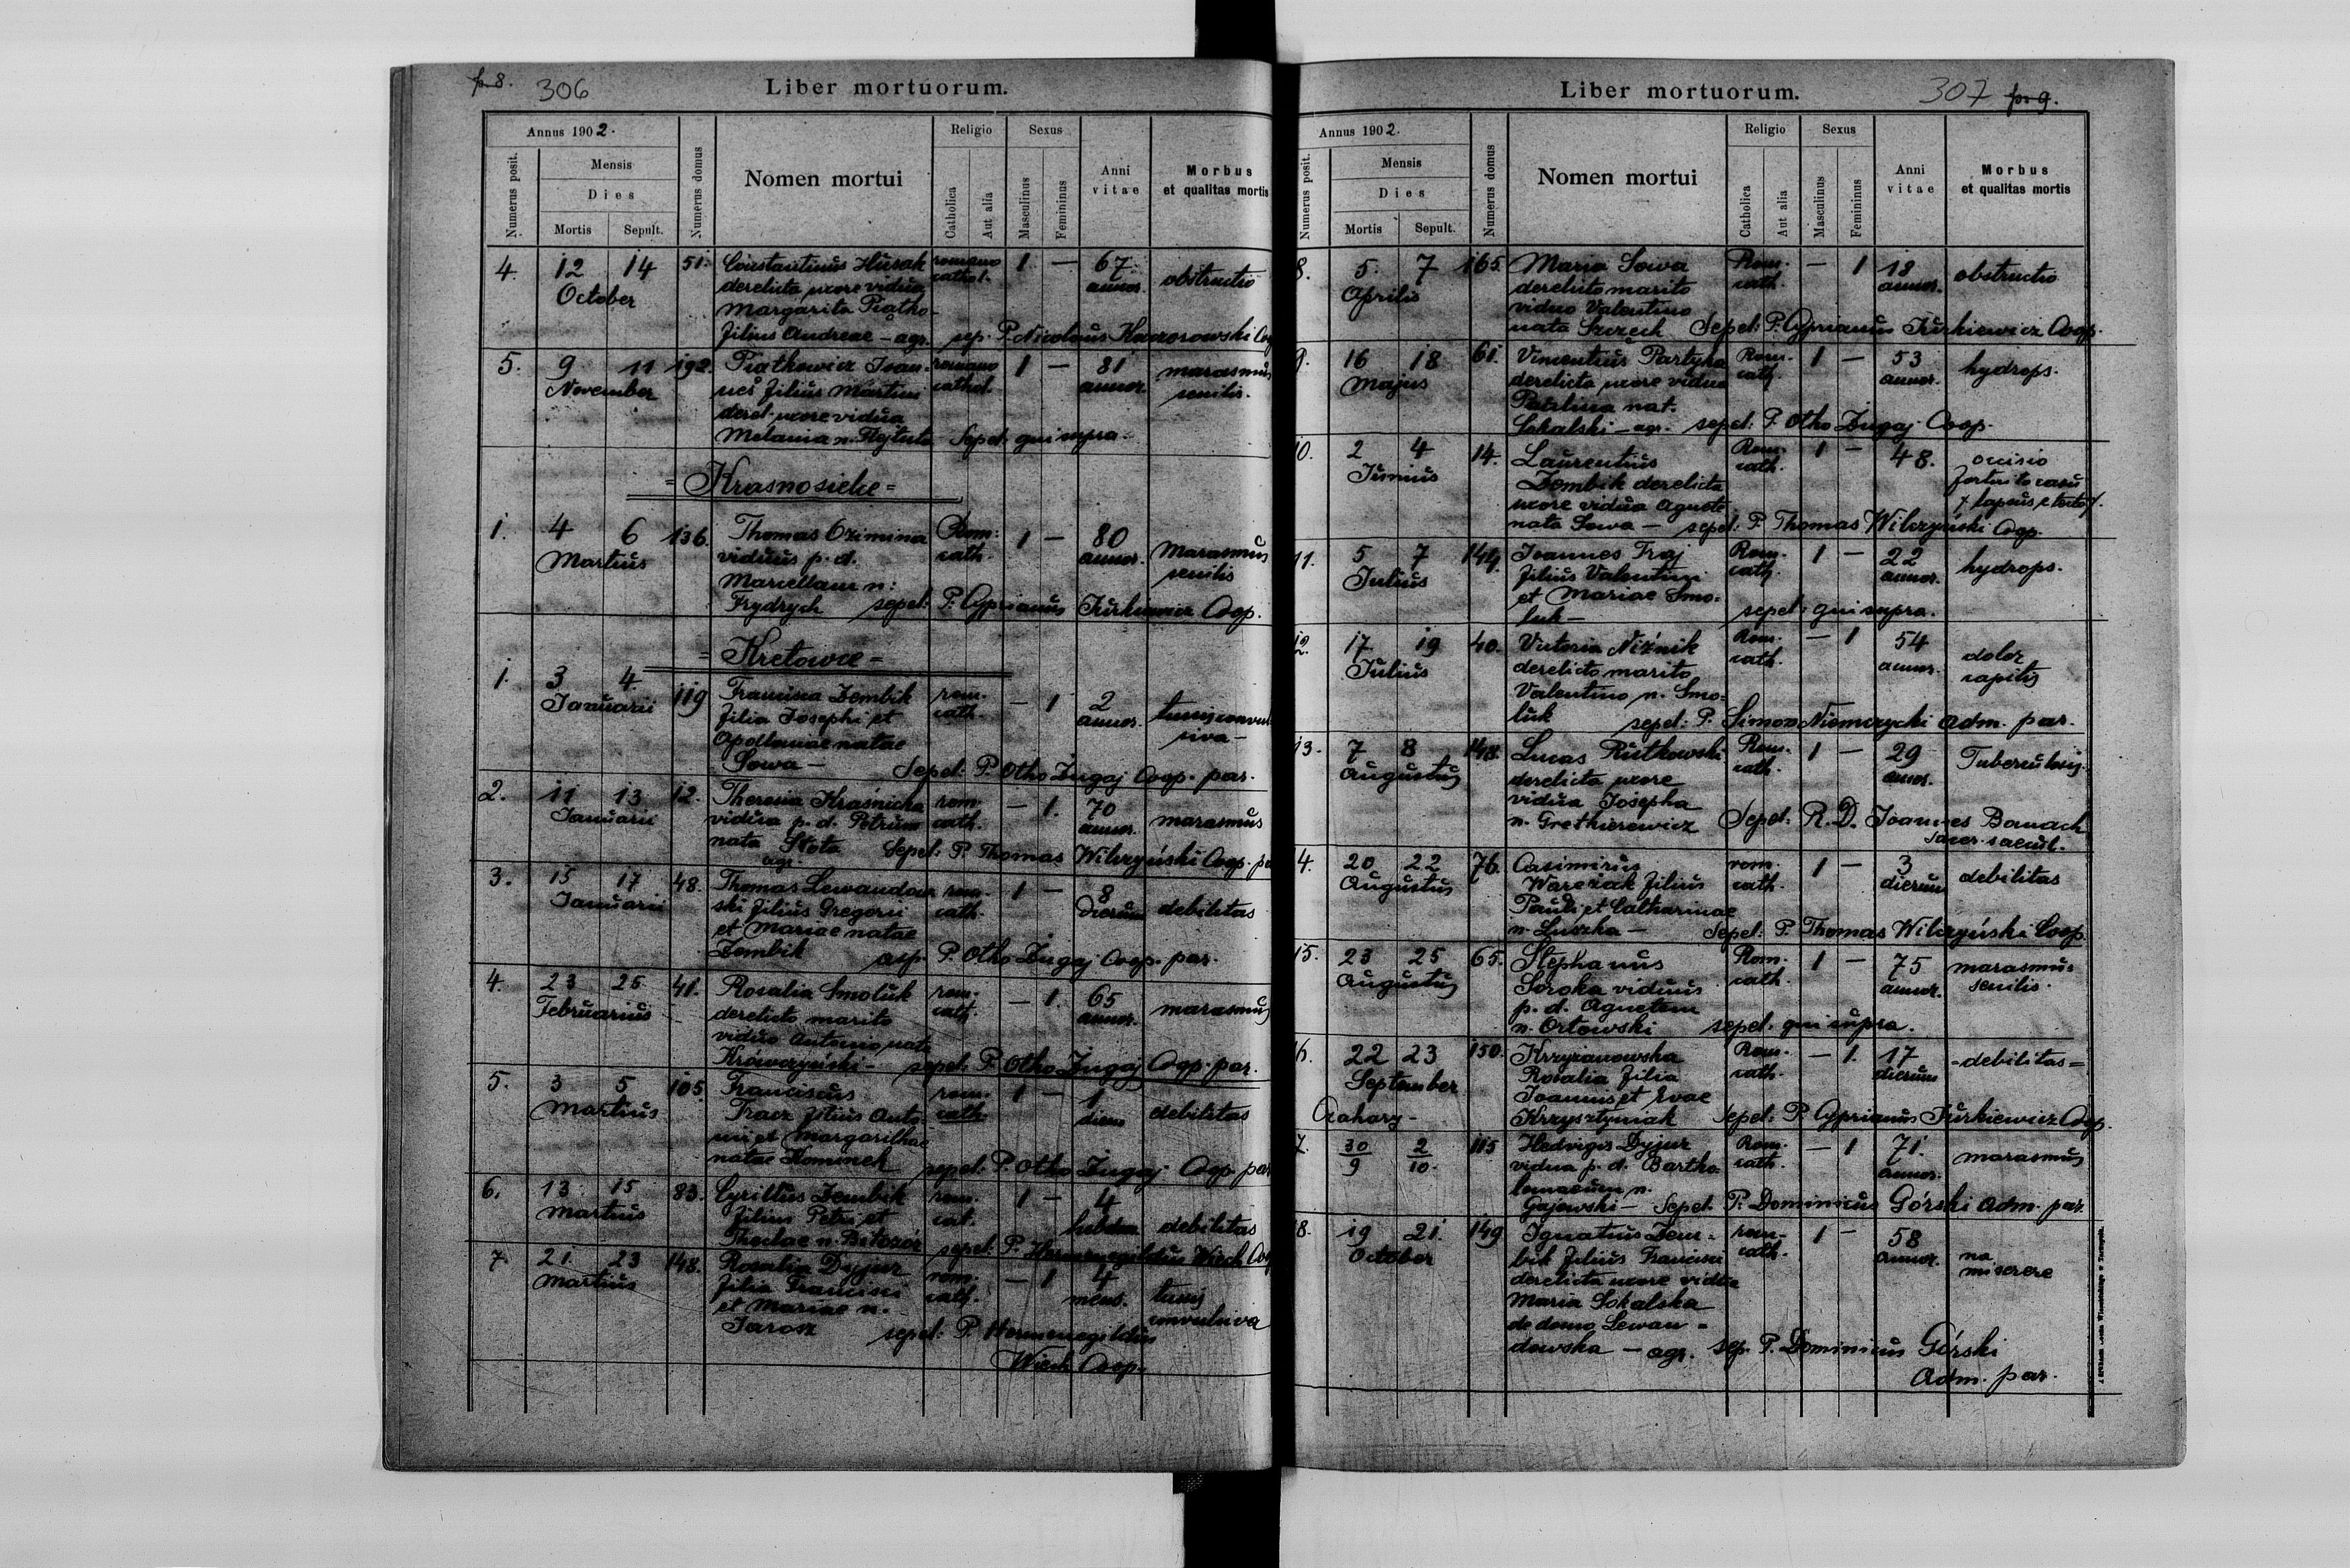 p. 8. 306 Liber mortuorum.
Annus 1902.
Numerus posit.
Mensis
Dies
Mortis Sepult.
Numerus domus
Nomen mortui
Religio
Catholica
Aut alia
Sexus
Masculinus
Femininus
Anni vitae
Morbus et qualitas mortis
4. 12 14 51. Constantinus Husak romano 1 — 67
October derelicta uxore vidua cathol. annor. obstructio
Margarita
filius Andreae — agr. sep. P. Nicolaus Coop
5. 9 11 192. Piatkowicz Joan- romano 1 — 81 marasmus
November nes filius Martini cathol. annor. senilis.
derel. uxore vidua
Melania n. Sepel. qui supra.
= Krasnosielce =
1. 4 6 136. Thomas Ozimina Rom. 1 — 80
Martius viduus p. d. cath. annor. Marasmus
Marcellam n: senilis
Frydrych sepel: P. Cyprianus Turkiewicz Coop.
= Kretowce =
1. 3 4 119 Francisca Dembik rom. — 1 2
Januarii filia Josephi et cath. annor. tussis convul
natae siva —
Sowa — Sepel: P. Otho Zugaj Coop. par.
2. 11 13 12. Theresia Kraśnicka rom. — 1. 70
Januarii vidua p. d. Petrum cath. annor. marasmus
nata Słota Sepel: P. Thomas Wilczyński Coop. pa
agr.
3. 15 17 48. Thomas Lewandow rom. 1 — 8
Januarii ski filius Gregorii cath. dierum debilitas
et Mariae natae
Dembik P. Otho Zugaj Coop. par.
4. 23 25 41. Rosalia Smoluk rom. — 1. 65
Februarius derelicto marito cath. annor. marasmus
viduo Antonio nata
Krawczyński — sepel: P. Otho Zugaj Coop. par.
5. 3 5 105. Franciscus rom. 1 — 1
Martius Tracz filius Anto cath. diem debilitas
nii et Margarithae
natae Kominek sepel: P. Otho Zugaj Coop par
6. 13 15 83. Cyrillus Dembik rom. 1 — 4
Martius filius Petri et cat. hebdom debilitas
Theclae n. Białozór sepel: P. Hermenegildus Wiech Coop
7. 21 23 148. Rosalia Dyjur rom. — 1 4
Martius filia Francisci cath. mens. tussis
et Mariae n. convulsiva
Jarosz sepel: P. Hermenegildus
Wiech Coop.
Liber mortuorum. 307 p. 9.
Annus 1902.
Numerus posit.
Mensis
Dies
Mortis Sepult.
Numerus domus
Nomen mortui
Religio
Catholica
Aut alia
Sexus
Masculinus
Femininus
Anni vitae
Morbus et qualitas mortis
8. 5. 7 165. Maria Sowa Rom. — 1 18
Aprilis derelicto marito cath. annor. obstructio
viduo Valentino
nata Szczech Sepel: P. Cyprianus Turkiewicz Coop.
9. 16 18 61. Vincentius Partyka Rom. 1 — 53
Majus derelicta uxore vidua cath. annor. hydrops.
Paulina nat.
Sokalski — agr. sepel: P. Otho Zugaj Coop.
10. 2 4 14. Laurentius Rom. 1 — 48. occisio
Junius Dembik derelicta cath. fortuito casu
uxore vidua Agnete / lapsus e tecto /.
nata Sowa — sepel: P. Thomas Wilczyński Coop.
11. 5 7 144. Joannes Rom. 1 — 22
Julius filius Valentini cath. annor. hydrops.
et Mariae Smo-
luk — sepel: qui supra.
12. 17 19 40. Victoria Niźnik Rom. — 1 54
Julius derelicto marito cath. annor. dolor
Valentino n. Smo- capitis
luk sepel: P. Simon Niemczycki Adm. par.
13. 7 8 148. Lucas Rutkowski Rom. 1 — 29
Augustus derelicta uxore cath. annor. Tuberculosis.
vidua Josepha
n. Grethierewicz Sepel: R. D. Joannes Banach
Sacer. saecul.
14. 20 22 76. Casimirus rom. 1 — 3
Augustus Wareżak filius cath. dierum debilitas
Pauli et Catharinae
n. Luszka — Sepel: P. Thomas Wilczyński Coop.
15. 23 25 65. Stephanus Rom. 1 — 75 marasmus
Augustus Soroka viduus cath. annor. senilis.
p. d. Agnetem
n. Ortowski sepel. qui supra.
16. 22 23 150. Krzyżanowska Rom. — 1. 17
September Rosalia filia cath. dierum = debilitas =
Joannis et Evae
Krzysztyniak Sepel: P. Cyprianus Turkiewicz Coop.
17. 30/9 2/10. 115 Hedvigis Dyjur Rom. — 1 71.
vidua p. d. Bartho cath. annor. marasmus
lomaeum n.
Gajewski — Sepel. P. Dominicus Górski Adm. par.
18. 19 21. 149 Ignatius Dem- rom. 1 — 58
October bik filius Francisci cath. annor. na
derelicta uxore vidua miserere
Maria Sokalska
de domo Lewan -
dowska — agr. sep. P. Dominicus Górski
Adm. par.